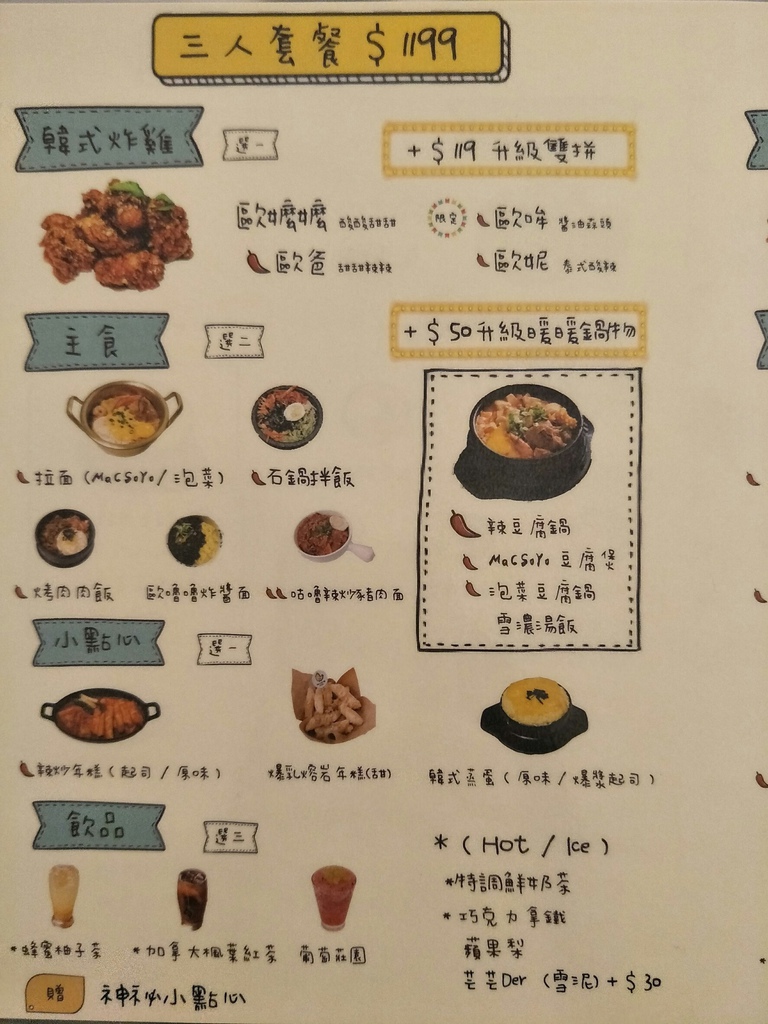 三人套餐 $ 1199
韓式炸雞 選一
+ $ 119 升級雙拼
歐嬤嬤 酸酸甜甜
限定 歐哞 醬油蒜頭
歐爸 甜甜辣辣
歐妮 泰式酸辣
主食 選二
+ $ 50 升級暖暖鍋物
拉面 (MaCSoYo / 泡菜)
石鍋拌飯
烤肉肉飯
歐嚕嚕炸醬面
咕嚕辣炒豬肉面
辣豆腐鍋
MaCSoYo 豆腐煲
泡菜豆腐鍋
雪濃湯飯
小點心 選一
辣炒年糕 (起司 / 原味)
爆乳熔岩年糕(甜)
韓式蒸蛋 (原味 / 爆漿起司)
飲品 選三
*蜂蜜柚子茶
*加拿大楓葉紅茶
葡萄莊園
* (Hot / Ice)
*特調鮮奶茶
*巧克力拿鐵
蘋果梨
芒芒Der (雪泥) + $ 30
贈 神祕小點心